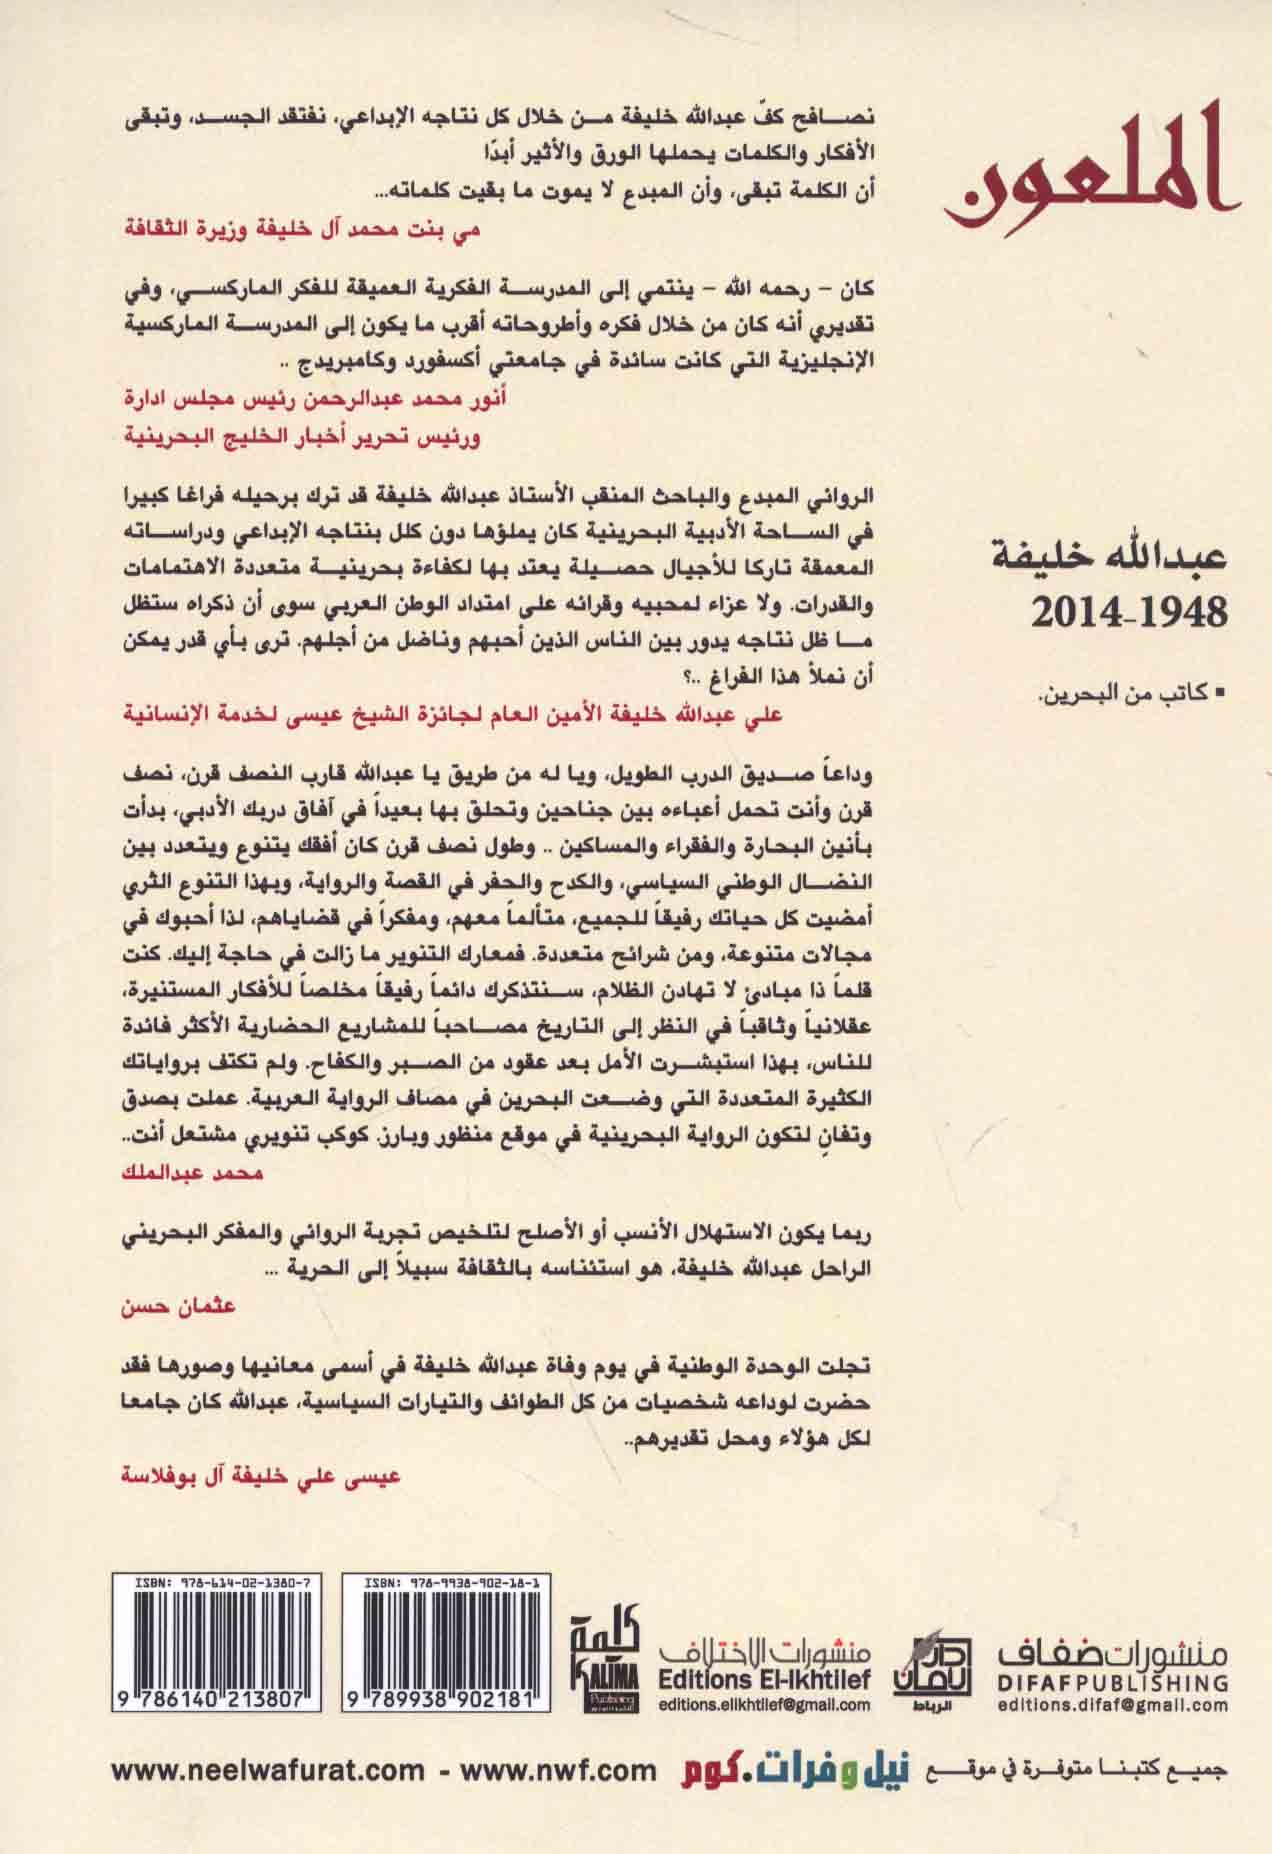 الملعون
عبدالله خليفة
2014-1948
▪ كاتب من البحرين.
نصافح كفّ عبدالله خليفة من خلال كل نتاجه الإبداعي، نفتقد الجسد، وتبقى
الأفكار والكلمات يحملها الورق والأثير أبدًا
أن الكلمة تبقى، وأن المبدع لا يموت ما بقيت كلماته...
مي بنت محمد آل خليفة وزيرة الثقافة
كان – رحمه الله – ينتمي إلى المدرسة الفكرية العميقة للفكر الماركسي، وفي
تقديري أنه كان من خلال فكره وأطروحاته أقرب ما يكون إلى المدرسة الماركسية
الإنجليزية التي كانت سائدة في جامعتي أكسفورد وكامبريدج ..
أنور محمد عبدالرحمن رئيس مجلس ادارة
ورئيس تحرير أخبار الخليج البحرينية
الروائي المبدع والباحث المنقب الأستاذ عبدالله خليفة قد ترك برحيله فراغا كبيرا
في الساحة الأدبية البحرينية كان يملؤها دون كلل بنتاجه الإبداعي ودراساته
المعمقة تاركا للأجيال حصيلة يعتد بها لكفاءة بحرينية متعددة الاهتمامات
والقدرات. ولا عزاء لمحبيه وقرائه على امتداد الوطن العربي سوى أن ذكراه ستظل
ما ظل نتاجه يدور بين الناس الذين أحبهم وناضل من أجلهم. ترى بأي قدر يمكن
أن نملأ هذا الفراغ ..؟
علي عبدالله خليفة الأمين العام لجائزة الشيخ عيسى لخدمة الإنسانية
وداعاً صديق الدرب الطويل، ويا له من طريق يا عبدالله قارب النصف قرن، نصف
قرن وأنت تحمل أعباءه بين جناحين وتحلق بها بعيداً في آفاق دربك الأدبي، بدأت
بأنين البحارة والفقراء والمساكين .. وطول نصف قرن كان أفقك يتنوع ويتعدد بين
النضال الوطني السياسي، والكدح والحفر في القصة والرواية، وبهذا التنوع الثري
أمضيت كل حياتك رفيقاً للجميع، متألماً معهم، ومفكراً في قضاياهم، لذا أحبوك في
مجالات متنوعة، ومن شرائح متعددة. فمعارك التنوير ما زالت في حاجة إليك. كنت
قلماً ذا مبادئ لا تهادن الظلام، سنتذكرك دائماً رفيقاً مخلصاً للأفكار المستنيرة،
عقلانياً وثاقباً في النظر إلى التاريخ مصاحباً للمشاريع الحضارية الأكثر فائدة
للناس، بهذا استبشرت الأمل بعد عقود من الصبر والكفاح. ولم تكتف برواياتك
الكثيرة المتعددة التي وضعت البحرين في مصاف الرواية العربية. عملت بصدق
وتفانٍ لتكون الرواية البحرينية في موقع منظور وبارز. كوكب تنويري مشتعل أنت..
محمد عبدالملك
ربما يكون الاستهلال الأنسب أو الأصلح لتلخيص تجربة الروائي والمفكر البحريني
الراحل عبدالله خليفة، هو استئناسه بالثقافة سبيلاً إلى الحرية ...
عثمان حسن
تجلت الوحدة الوطنية في يوم وفاة عبدالله خليفة في أسمى معانيها وصورها فقد
حضرت لوداعه شخصيات من كل الطوائف والتيارات السياسية، عبدالله كان جامعا
لكل هؤلاء ومحل تقديرهم..
عيسى علي خليفة آل بوفلاسة
منشورات ضفاف
DIFAF PUBLISHING
editions.difaf@gmail.com
دار الأمان
الرباط
منشورات الاختلاف
Editions El-Ikhtilef
editions.elikhtilef@gmail.com
كلمة
KALIMA
Publishing
ISBN: 978-9938-902-18-1
9 789938 902181
ISBN: 978-614-02-1380-7
9 786140 213807
جميع كتبنا متوفرة في موقع نيل وفرات.كوم www.neelwafurat.com - www.nwf.com